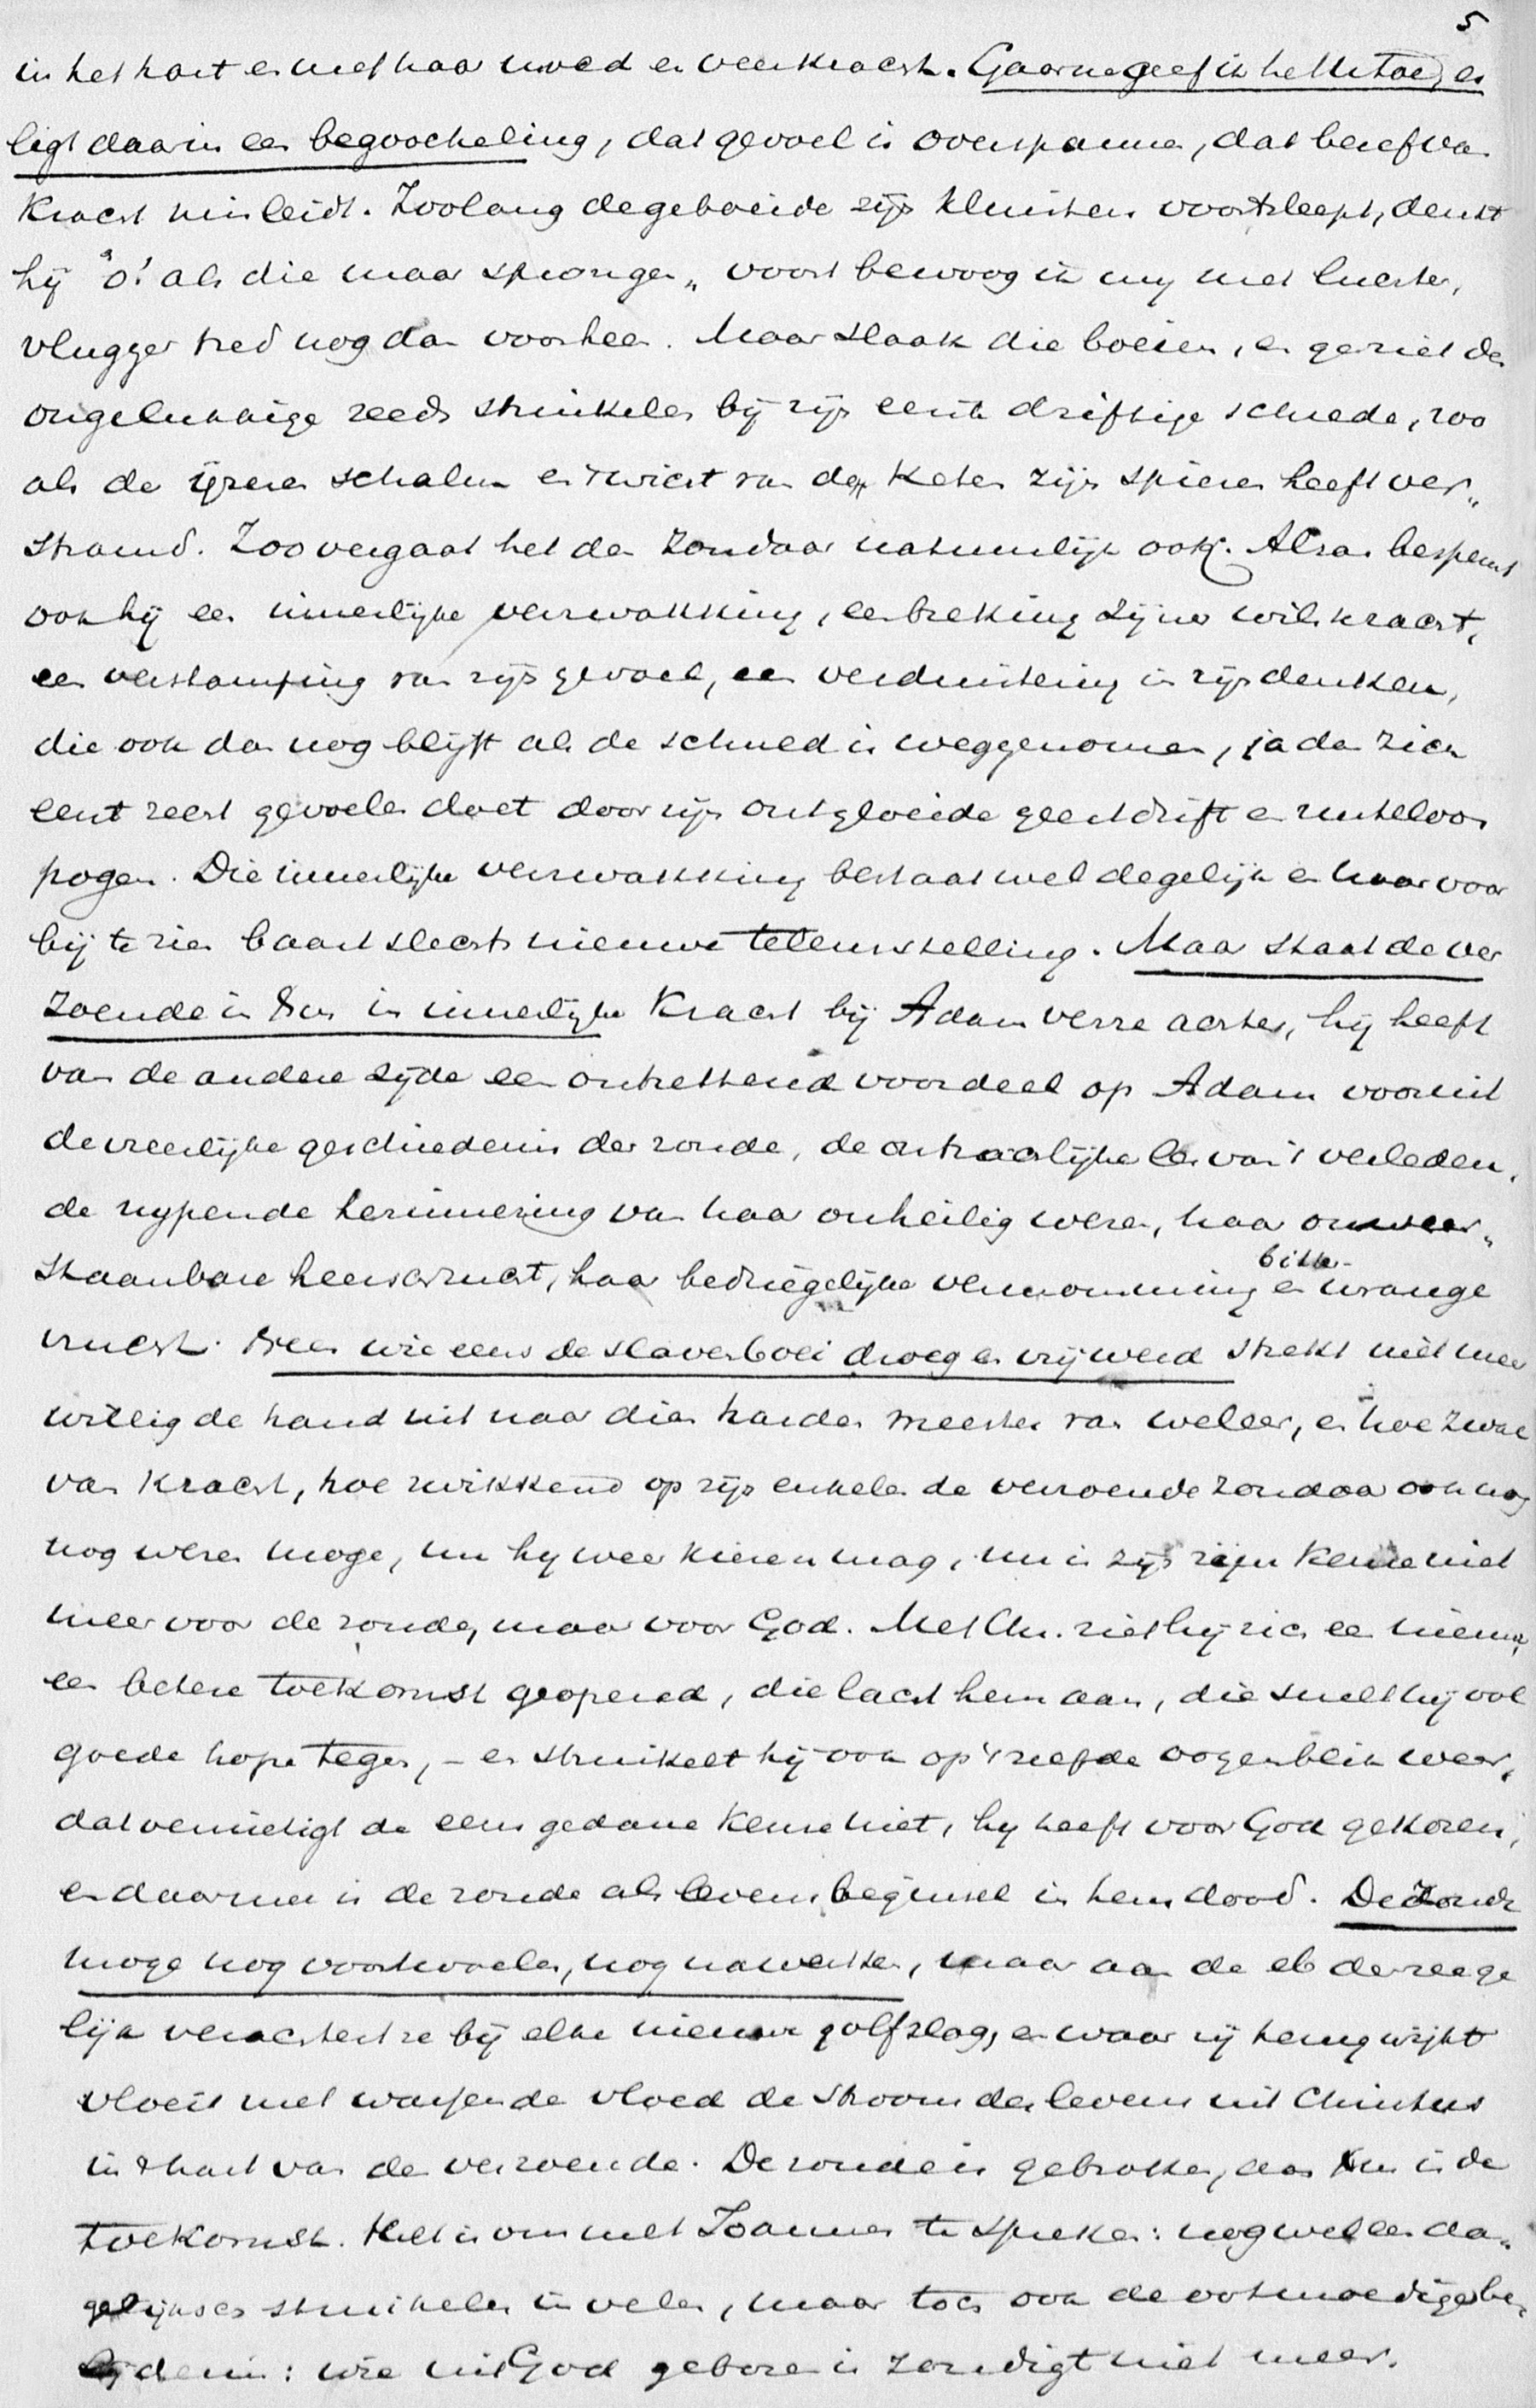 5
in het hart en met haar moed en veerkracht. Gaarne geef ik hettetoe, er
ligt daarin een begoocheling, dat gevoel is overspannen, dat besef van
kracht misleidt. Zoolang de geboeide zijn kluisters voortsleept, denkt
hij "o! als die maar sprongen„ voort bewoog ik mij met luchter,
vlugger tred nog dan voorheen. Maar slaak die boeien, en ge ziet den
ongelukkige reeds struikelen bij zijn eerste driftige schrede, zoo
als de ijzeren schalm en 't wicht van den keten zijn spieren heeft ver„
stramd. Zoo vergaat het den zondaar natuurlijk ook. Alzoo bespeurt
ook hij een innerlijke verzwakking, een breking zijner wilskracht,
een verstomping van zijn gevoel, een verduistering in zijn denken,
die ook dan nog blijft als de schuld is weggenomen, ja dan zich
eerst recht gevoelen doet door zijn ontgloeide geestdrift en rusteloos
pogen. Die innerlijke verzwakking bestaat wel degelijk en haar voor
bij te zien baart slechts nieuwe teleurstelling. Maar staat de ver
zoende in dus in innerlijke kracht bij Adam verre achter, hij heeft
van de andere zijde een ontzettend voordeel op Adam vooruit
de vreeslijke geschiedenis der zonde, de ontzachlijke les van 't verleden,
de nijpende herinnering van haar onheilig wezen, haar onweer„
staanbare heerschzucht, haar bedriegelijke vermomming en
bitter-
wrange
vrucht. Neen wie eens de slavenboei droeg en vrij werd strekt niet meer
willig de hand uit naar dien harden meester van weleer, en hoe zwak
van kracht, hoe zwikkend op zijn enkelen de verzoende zondaar ook nog
nog wezen moge, nu hij weer kiezen mag, nu is zijn zijn keuze niet
meer voor de zonde, maar voor God. Met Chr. ziet hij zich een nieuwe,
een betere toekomst geopened, die lacht hem aan, die snelt hij vol
goede hope tegen, – en struikelt hij ook op 't zelfde oogenblik weer,
dat vernietigt de eens gedane keuze niet, hij heeft voor God gekozen,
en daarmee is de zonde als levensbeginsel in hem dood. De Zonde
moge nog voortwoelen, nog nawerken, maar aan de eb der zee ge
lijk verachtert ze bij elke nieuwe golfslag, en waar zij terug wijkt
vloeit met wassende vloed de stroom des levens uit Christus
in 't hart van den verzoende. De zonde is gebroken, aan hem is de
toekomst. Het is om met Joannes te spreken: nog wel een da„
gelijksch struikelen in velen, maar toch ook de ootmoedige be„
lijdenis: wie uit God geboren is zondigt niet meer.